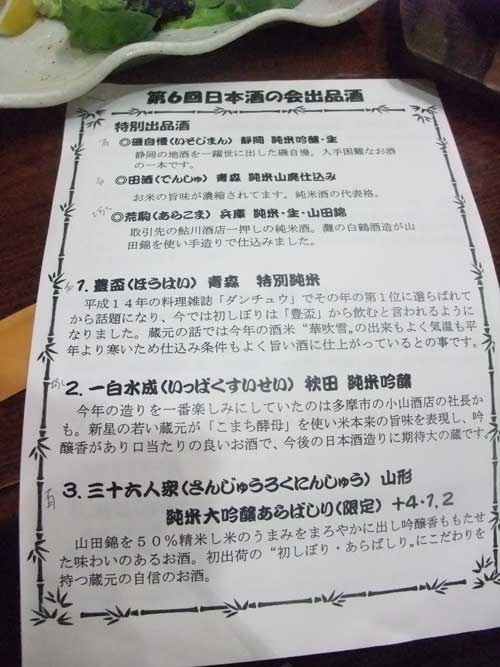 第6回日本酒の会出品酒
特別出品酒
◎磯自慢(いそじまん) 静岡 純米吟醸・生
静岡の地酒を一躍世に出した磯自慢。入手困難なお酒
の一本です。
◎田酒(でんしゅ) 青森 純米山廃仕込み
お米の旨味が濃縮されてます。純米酒の代表格。
◎荒駒(あらこま) 兵庫 純米・生・山田錦
取引先の鮎川酒店一押しの純米酒。灘の白鶴酒造が山
田錦を使い手造りで仕込みました。
1. 豊盃(ほうはい) 青森 特別純米
平成14年の料理雑誌「ダンチュウ」でその年の第1位に選らばれて
から話題になり、今では初しぼりは「豊盃」から飲むと言われるように
なりました。蔵元の話では今年の酒米“華吹雪”の出来もよく気温も平
年より寒いため仕込み条件もよく旨い酒に仕上がっているとの事です。
2. 一白水成(いっぱくすいせい) 秋田 純米吟醸
今年の造りを一番楽しみにしていたのは多摩市の小山酒店の社長か
も。新星の若い蔵元が「こまち酵母」を使い米本来の旨味を表現し、吟
醸香があり口当たりの良いお酒で、今後の日本酒造りに期待大の蔵です。
3. 三十六人衆(さんじゅうろくにんしゅう) 山形
純米大吟醸あらばしり(限定) +4・1,2
山田錦を50%精米し米のうまみをまろやかに出し吟醸香ももたせ
た味わいのあるお酒。初出荷の“初しぼり・あらばしり”にこだわりを
持つ蔵元の自信のお酒。